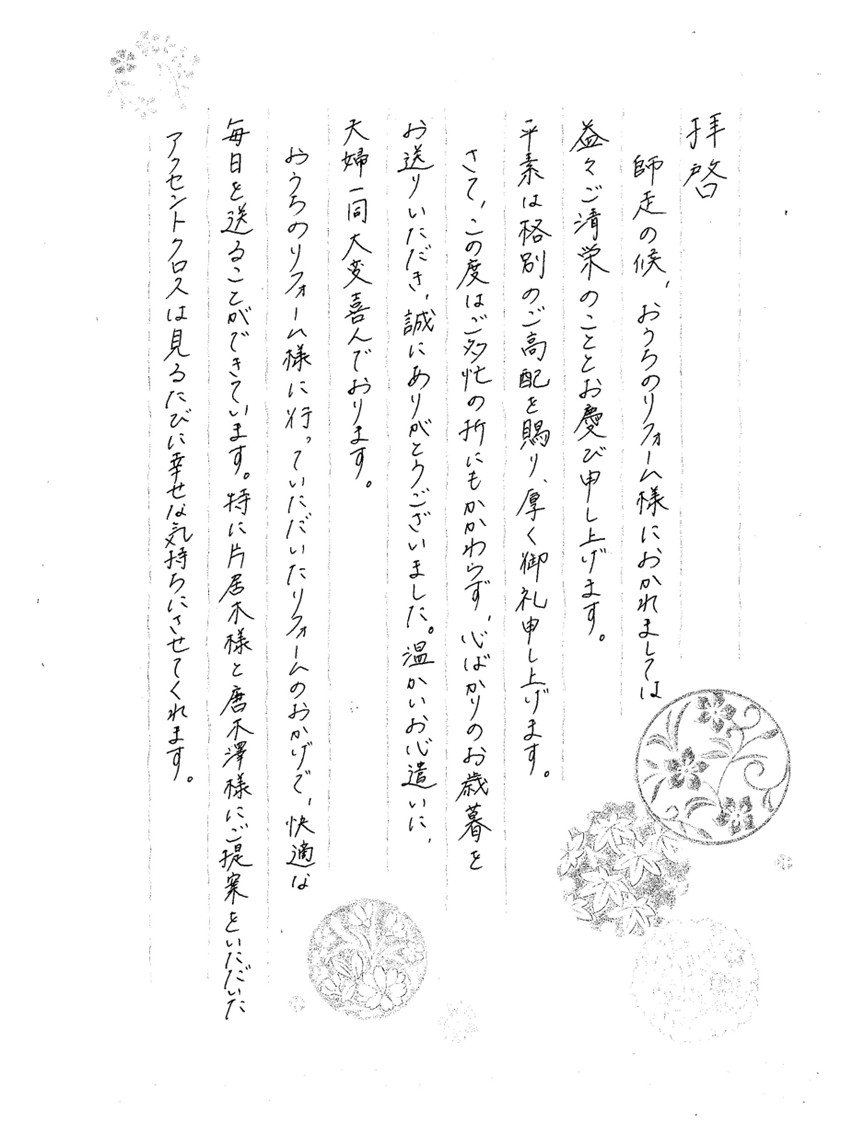 拝啓
師走の候、おうちのリフォーム様におかれましては
益々ご清栄のこととお慶び申し上げます。
平素は格別のご高配を賜り、厚く御礼申し上げます。
さて、この度はご多忙の折にもかかわらず、心ばかりのお歳暮を
お送りいただき、誠にありがとうございました。温かいお心遣いに、
夫婦一同大変喜んでおります。
おうちのリフォーム様に行っていただいたリフォームのおかげで、快適な
毎日を送ることができています。特に片居木様と唐木澤様にご提案をいただいた
アクセントクロスは見るたびに幸せな気持ちにさせてくれます。